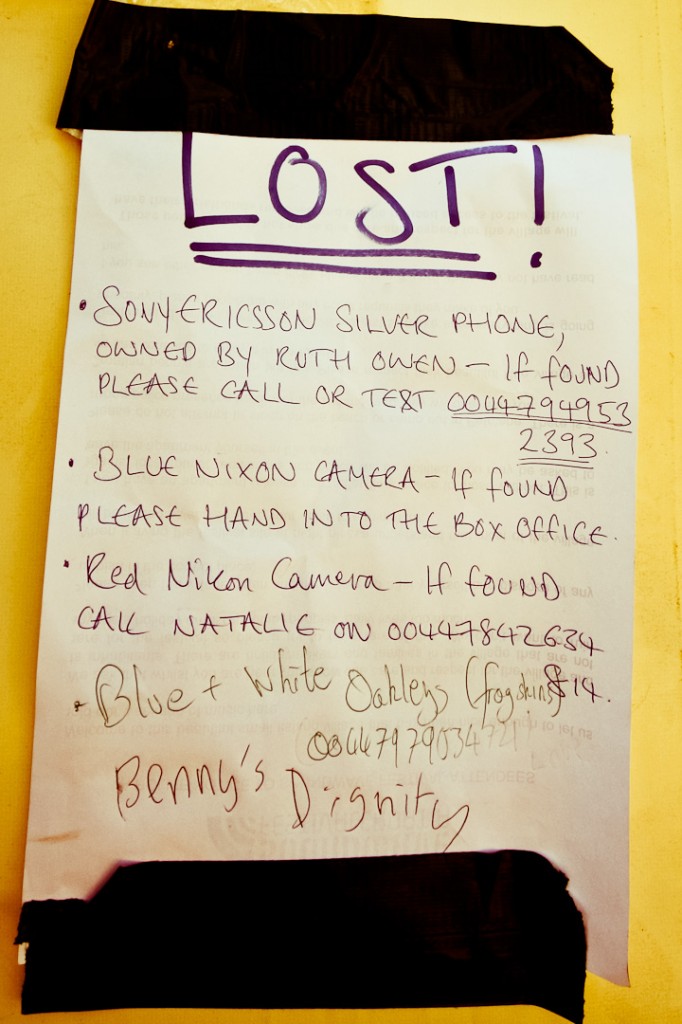 LOST!
• SONYERICSSON SILVER PHONE,
OWNED BY RUTH OWEN – If fOUND
PLEASE CALL OR TEXT 0044794953
2393.
• BLUE NIXON CAMERA – If fOUND
PLEASE HAND IN TO THE BOX OFFICE.
• Red Nikon Camera – If fOUND
CALL NATALIE ON 00447842634
814.
• Blue + White Oakleys (frogskins)
Benny's Dignity